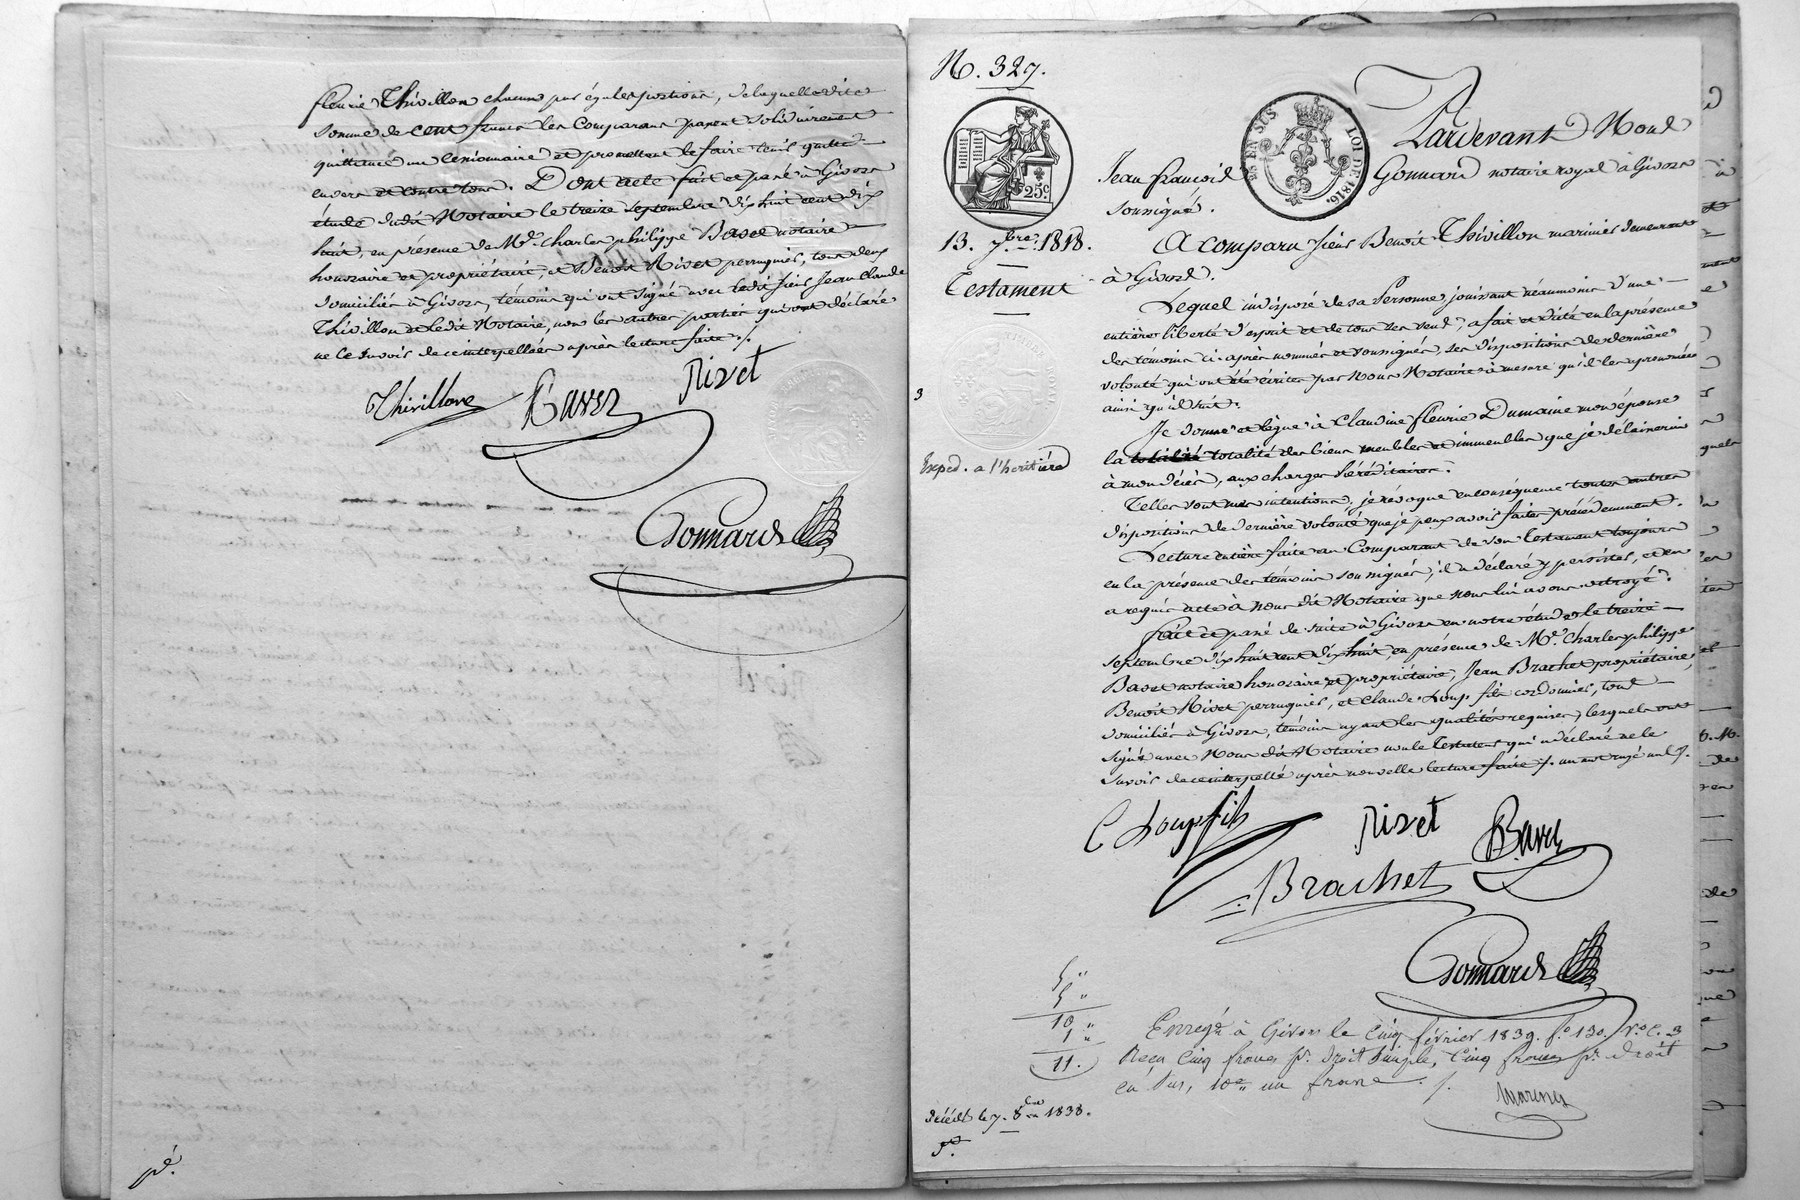 fleurie Thivillon chacun par égales portions, de laquelle dite
somme de cent francs les Comparans passent solidairement
quittance au cessionnaire et promettent de faire tenir quitte
envers et contre tous. Dont acte fait et passé à Givors
étude dudit Notaire le treize septembre dix huit cent dix
huit, en présence de Me. Charles philippe Basset notaire
honoraire et propriétaire, et Benoit Rivet perruquier, tous deux
domiciliés à Givors, témoins qui ont signé avec ledit sieur Jean Claude
Thivillon et ledit Notaire, non les autres parties qui ont déclaré
ne le savoir de ce interpellées après lecture faite ./.
Thivillon
Rivet
Gonnard
N. 327.
25c.
EN SUS
LOI DE 1816.
13. 7bre. 1818.
Testament
Expéd. a l'heritière
Pardevant Nous
Jean françois Gonnard notaire royal à Givors
soussigné.
A comparu sieur Benoit Thivillon marinier demeurant
à Givors.
Lequel indisposé de sa Personne jouissant néanmoins d'une
entière liberté d'esprit et de tous ses sens, a fait et dicté en la présence
des témoins ci-après nommés et soussignés, ses dispositions de dernière
volonté qui ont été écrites par Nous Notaire à mesure qu'il les a prononcées
ainsi qu'il suit.
Je donne et lègue à Claudine fleurie Dumaine mon épouse
la totalité des biens meubles et immeubles que je délaisserai
à mon décès, aux charges héréditaires.
Telles sont mes intentions, je révoque en conséquence toutes autres
dispositions de dernière volonté que je peux avoir faites précédemment.
Lecture entière faite au Comparant de son testament toujours
en la présence des témoins soussignés, il a déclaré y persister, et en
a requis acte à nous dit Notaire que nous lui avons octroyé.
fait et passé de suite à Givors en notre étude le treize
septembre dix huit cent dix huit, en présence de Me. Charles philippe
Basset notaire honoraire et propriétaire, Jean Brachet propriétaire,
Benoit Rivet perruquier, et Claude Loup fils cordonnier, tous
domiciliés à Givors, témoins ayant les qualités requises, lesquels ont
signé avec Nous dit Notaire non le Testateur qui a déclaré ne le
savoir de ce interpellé après nouvelle lecture faite ./. un mot rayé nul ./.
C Loup fils
Rivet
Brachet
Gonnard
5 "
5 "
10 "
1 "
11.
Enregé à Givors le cinq février 1839. fo 130. Vo. C. 3
Reçu cinq francs pr. droit simple, cinq francs pr. droit
en sus, 10e un franc. ./.
décédé le 7. 8bre 1838.